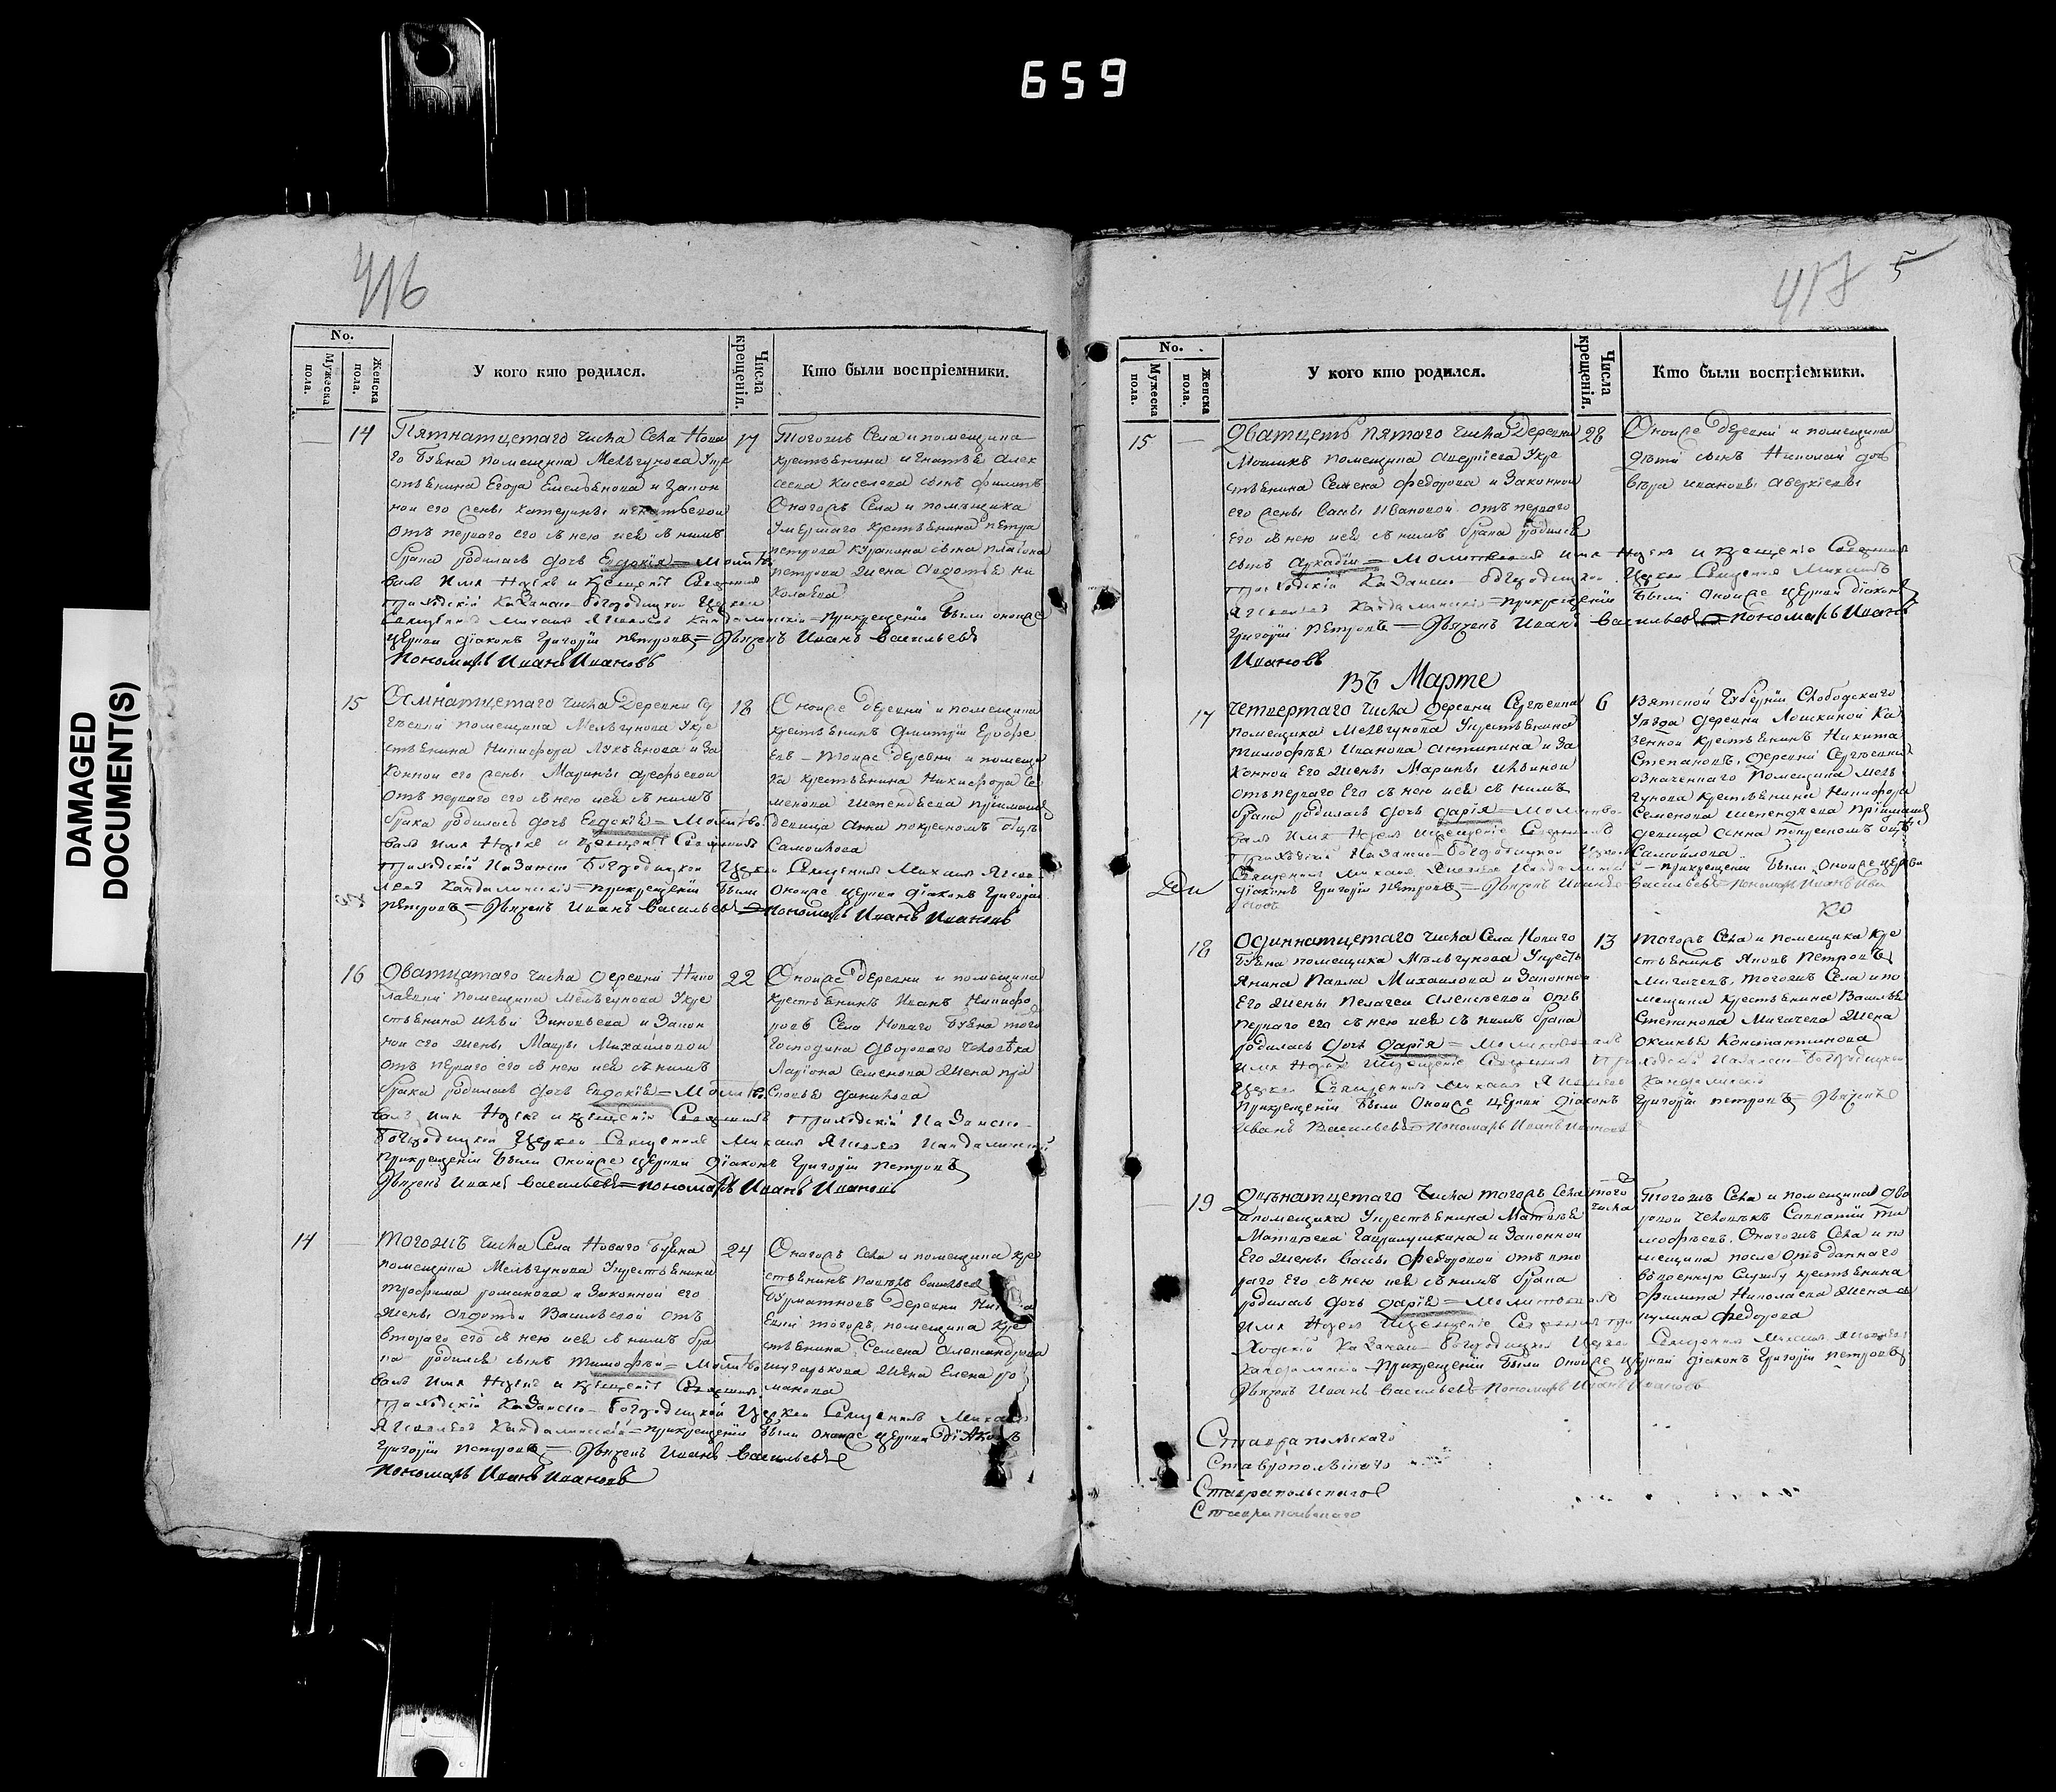 659
DAMAGED
DOCUMENT(S)
416
No.
Мужеска пола.
Женска пола.
У кого кто родился.
Числа крещенія.
Кто были воспріемники.
14
Пятнатцетаго числа Села Нова
го Буяна помещика Мельгунова Укре
стьянина Егора Емельянова и закон
ной его жены Катерины
отъ перваго его съ нею нея съ нимъ
брака родилась дочь Евдокія = Молитво
валъ имя нареке и крещеніе Совершилъ
приходскій Казанско Богородицкой Церкви
Священникъ Михаил Яковлев Кандалинскій = при крещеніи были оноиже
церкви діаконъ Григорій Петровъ = Дьячекъ Иванъ Васильевъ
Пономарь Иванъ Ивановъ
17
Тогожъ Села и помещика
крестьянина Игнатья Алек
сеева Киселева сынъ Филипъ
Оногожъ Села и помѣщика
Умершаго крестьянина Петра
Петрова Курапина сына Платона
Петрова жена Авдотья Ни
колаева
15
Осмнатцетаго числа Деревни Се
ргѣевки помещика Мельгунова Укре
стьянина Никифора Лукьянова и за
конной его жены Марины Арефьевой
отъ перваго его съ нею нея съ нимъ
брака родилась дочь Евдокія = Молитво
валъ имя нареке и крещеніе Совершилъ
приходскій Казанско Богородицкой Церкви Священник Михаил Яков
левъ Кандалинскій = при крещеніи были оноиже церкви діаконъ Григорій
Петровъ = Дьячекъ Иванъ Васильевъ = Пономарь Иванъ Ивановъ
18
Оноиже деревни и помещика
крестьянинъ Дмитрій Ерофе
евъ – тоиже деревни и помещи
ка крестьянина Никифора Се
менова Шепендяева приимышъ
девица Анна по крестномъ отцѣ
Самойлова
16
Дватцатаго числа деревни Нико
лаевки помещика Мельгунова Укре
стьянина Ильи Зиновьева и закон
ной его жены Мавры Михайловой
отъ перваго его съ нею нея съ нимъ
брака родилась дочь Евдокія = Молитво
валъ имя нареке и крещеніе Совершилъ приходскій Казанско
Богородицкой Церкви Священник Михаил Яковлев Кандалинскій
при крещеніи были оноиже церкви діаконъ Григорій Петровъ
Дьячекъ Иванъ Васильевъ = Пономарь Иванъ Ивановъ
22
Оноиже деревни и помещика
крестьянинъ Иванъ Никифо
ровъ Села Новаго Буяна того
Господина двороваго человѣка
Лариона Семенова жена Пра
сковья Данилова
14
Тогожъ числа Села Новаго Буяна
помещика Мельгунова Укрестьянина
Трофима Романова и законной его
жены Авдотьи Васильевой отъ
втораго его съ нею нея съ нимъ бра
ка родился сынъ Тимофей = Молитво
валъ имя нареке и крещеніе Совершилъ
приходскій Казанско Богородицкой Церкви Священник Михаил
Яковлевъ Кандалинскій = при крещеніи были оноиже церкви діаконъ
Григорій Петровъ = Дьячекъ Иванъ Васильевъ
Пономарь Иванъ Ивановъ
24
Оногожъ Села и помещика кре
стьянинъ Павелъ Васильев
Бурматновъ деревни
тогожъ помещика кре
стьянина Семена Александрова
жена Елена Ро
манова
417
5
No.
Мужеска пола.
Женска пола.
У кого кто родился.
Числа крещенія.
Кто были воспріемники.
15
Дватцеть пятаго числа Деревни
помещика Аверкіева Укре
стьянина Семена Федорова и законной
его жены Васы Ивановой отъ перваго
его съ нею нея съ нимъ брака родился
сынъ Аркадіи = Молитвовалъ имя нареке и крещеніе Совершилъ
приходскій Казанско Богородицкой Церкви Священник Михаилъ
Яковлев Кандалинскій = при крещеніи были оноиже церкви діаконъ
Григорій Петровъ = Дьячекъ Иванъ Васильевъ = Пономарь Иванъ
Ивановъ
28
Оноиже деревни и помещика
дѣти сынъ Николай дочь
Вѣра Ивановы Аверкіевы
Въ Марте
17
Четвертаго числа деревни Сергѣевки
помещика Мельгунова Укрестьянина
Тимофѣя Иванова Антипина и за
конной его жены Марины Ильиной
отъ перваго его съ нею нея съ нимъ
брака родилась дочь Дарія = Молитво
валъ имя нареке и крещеніе Совершилъ
приходскій Казанско Богородицкой Церкви
Священник Михаил Яковлев Кандалинскій = при крещеніи были оноиже церкви
діаконъ Григорій Петровъ = Дьячекъ Иванъ Васильевъ = Пономарь Иванъ Ива
новъ
6
Вятской Губерніи Слободскаго
Уѣзда деревни Лошкиной Ка
зенной крестьянинъ Никита
Степановъ, деревни Сергѣевки
означеннаго помещика Мель
гунова крестьянина Никифора
Семенова Шепендяева приимышъ
девица Анна по крестномъ отцѣ
Самойлова
ко
18
Одиннатцетаго числа Села Новаго
Буяна помещика Мельгунова Укресть
янина Павла Михайлова и законной
его жены Пелагеи Алексѣевой отъ
перваго его съ нею нея съ нимъ брака
родилась дочь Дарія = Молитвовалъ
имя нареке и крещеніе Совершил приходскій Казанско Богородицкой
Церкви Священник Михаил Яковлев Кандалинскій
при крещеніи были оноиже церкви діаконъ Григорій Петровъ = Дьячекъ
Иванъ Васильевъ = Пономарь Иванъ Ивановъ
13
Тогожъ Села и помещика кре
стьянинъ Яковъ Петровъ
Мигачевъ, тогожъ Села и по
мещика крестьянина Василья
Степанова Мигачева жена
Аксинья Константинова
19
Двѣнатцетаго числа тогожъ Села
и помещика Укрестьянина Матвѣя
Матвѣева Гаврилушкина и законной
его жены Васы Федоровой отъ вто
раго его съ нею нея съ нимъ брака
родилась дочь Дарія = Молитвовалъ
имя нареке и крещеніе Совершил при
ходскій Казанско Богородицкой Церкви Священник Михаил Яковлев
Кандалинскій при крещеніи были оноиже церкви діаконъ Григорій Петровъ
Дьячекъ Иванъ Васильевъ = Пономарь Иванъ Ивановъ
того
числа
Тогожъ Села и помещика дво
ровой человѣкъ Савватій Ти
мофѣевъ. Оногожъ Села и по
мещика после отданнаго
в военную службу крестьянина
Филипа Николаева жена А
кулина Федорова
Ставрапольскаго
Ставропольскаго
Ставрапольскаго
Ставрапольскаго